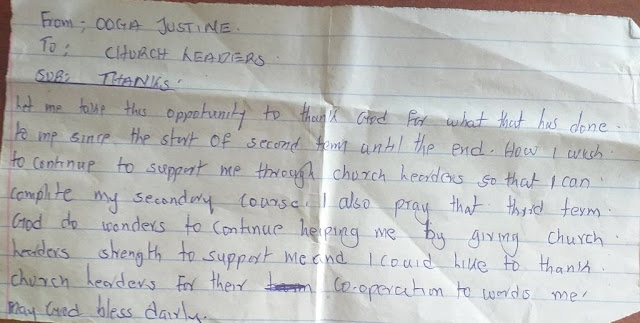 From; OOGA JUSTINE.
To; CHURCH LEADERS.
SUB: THANKS.
Let me take this opportunity to thank God for what that has done.
to me since the start of second term until the end. How I wish
to continue to support me through church leaders so that I can.
complite my secondary course. I also pray that third term.
God do wonders to continue helping me by giving church.
leaders strength to support me and I could like to thank.
church leaders for their co-operation to words me.
may God bless dairly.